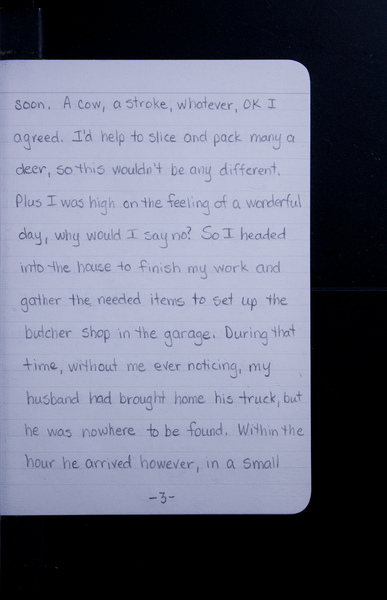 soon. A cow, a stroke, whatever, OK I
agreed. I'd help to slice and pack many a
deer, so this wouldn't be any different.
Plus I was high on the feeling of a wonderful
day, why would I say no? So I headed
into the house to finish my work and
gather the needed items to set up the
butcher shop in the garage. During that
time, without me ever noticing, my
husband had brought home his truck, but
he was nowhere to be found. Within the
hour he arrived however, in a small
-3-